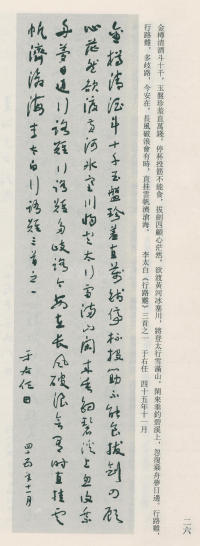 金樽清酒斗十千，玉盤珍羞直萬錢，停杯投箸不能食，拔劍四顧心茫然，欲渡黃河冰塞川，將登太行雪滿山，閑來垂釣碧溪上，忽復乘舟夢日邊。行路難，
行路難，多歧路，今安在，長風破浪會有時，直挂雲帆濟滄海， 李太白《行路難》三首之一 于右任 四十五年十一月
二六
金樽清酒斗十千玉盤珍羞直萬錢停杯投箸不能食拔劍四顧
心茫然欲渡黃河冰塞川將登太行雪滿山閑來垂釣碧溪上忽復乘
舟夢日邊行路難行路難多歧路今安在長風破浪會有時直挂雲
帆濟滄海 李太白行路難三首之一
于右任 四十五年十一月